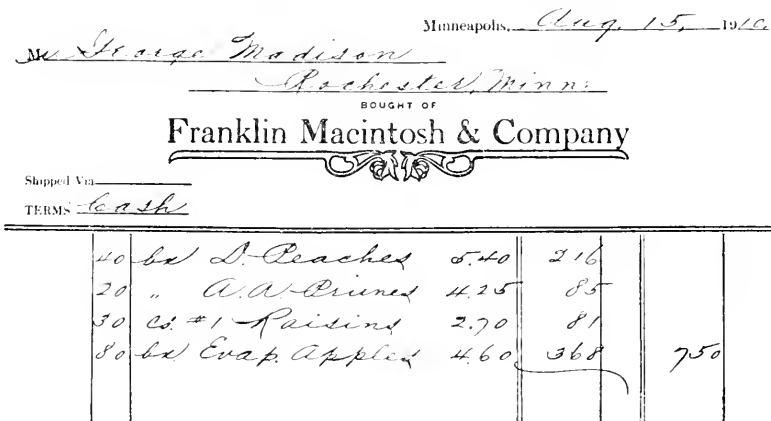 Minneapolis, Aug. 15, 1910.
Mr George Madison
Rochester, Minn.
BOUGHT OF
Franklin Macintosh & Company
Shipped Via
TERMS Cash
40 bx D. Peaches 5.40 216
20 " A.A. Prunes 4.25 85
30 cs. #1 Raisins 2.70 81
80 bx Evap. Apples 4.60 368 750